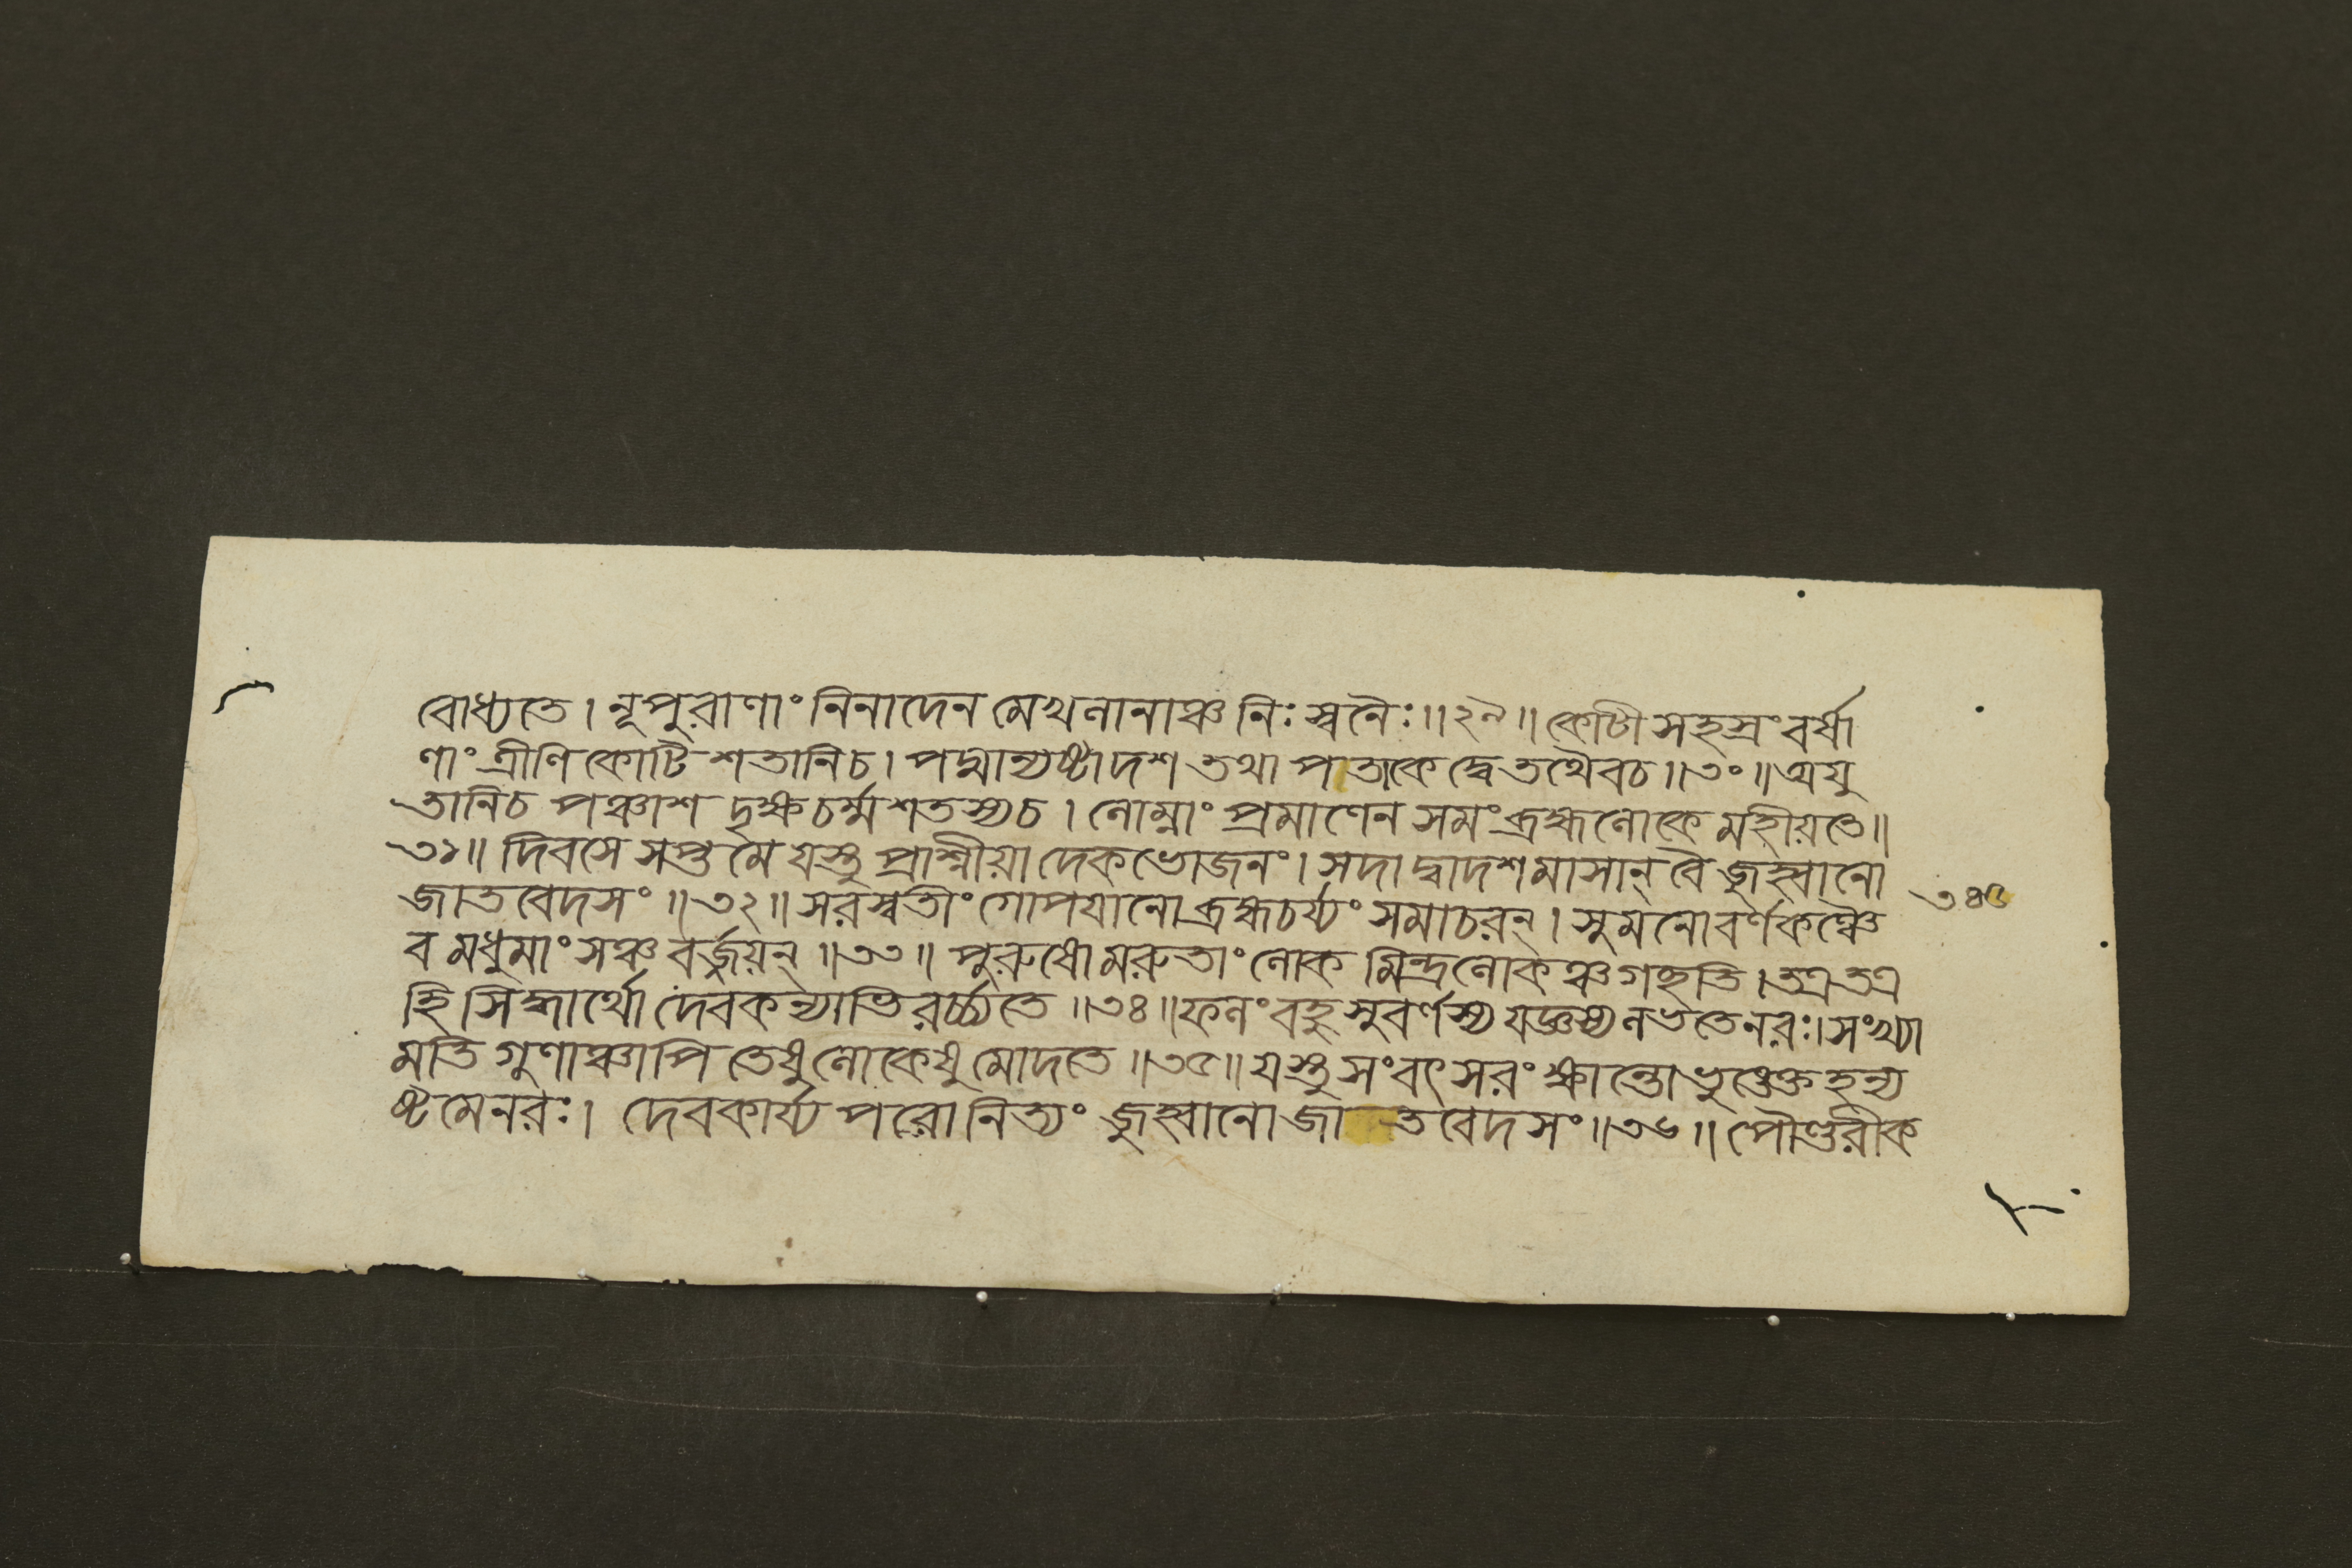 বোধ্যতে । নূপুরাণাং নিনাদেন মেখলানাঞ্চ নিঃস্বনৈঃ ॥ ২৯ ॥ কোটীসহস্রং বর্ষা
ণাং ত্রীণি কোটি শতানি চ । পদ্মান্যষ্টাদশ তথা পতাকে দ্বে তথৈবচ ॥ ৩০ ॥ অযু
তানি চ পঞ্চাশদৃক্ষচর্ম্মশতস্য চ । লোম্নাং প্রমাণেন সমং ব্রহ্মলোকে মহীয়তে ॥
৩১ ॥ দিবসে সপ্তমে যস্তু প্রাশ্নীয়াদেকভোজনং । সদা দ্বাদশমাসান্ বৈ জুহ্বানো
জাতবেদসং ॥ ৩২ ॥ সরস্বতীং গোপযানো ব্রহ্মচর্য্যং সমাচরন্ । সুমনোবর্ণকঞ্চৈ
৩৪৫
ব মধুমাংসঞ্চ বর্জ্জয়ন্ ॥ ৩৩ ॥ পুরুষো মরুতাং লোকমিন্দ্রলোকঞ্চ গছতি । তত্র তত্র
হি সিদ্ধার্থো দেবকন্যাভিরর্চ্চ্যতে ॥ ৩৪ ॥ ফলং বহুসুবর্ণস্য যজ্ঞস্য লভতে নরঃ । সংখ্যা
মতিগুণাঞ্চাপি তেষু লোকেষু মোদতে ॥ ৩৫ ॥ যস্তু সংবৎসরং ক্ষান্তো ভুঙ্ক্তেহন্য
ষ্টমে নরঃ । দেবকার্য্যপরো নিত্যং জুহ্বানো জাতবেদসং ॥ ৩৬ ॥ পৌণ্ডরীক